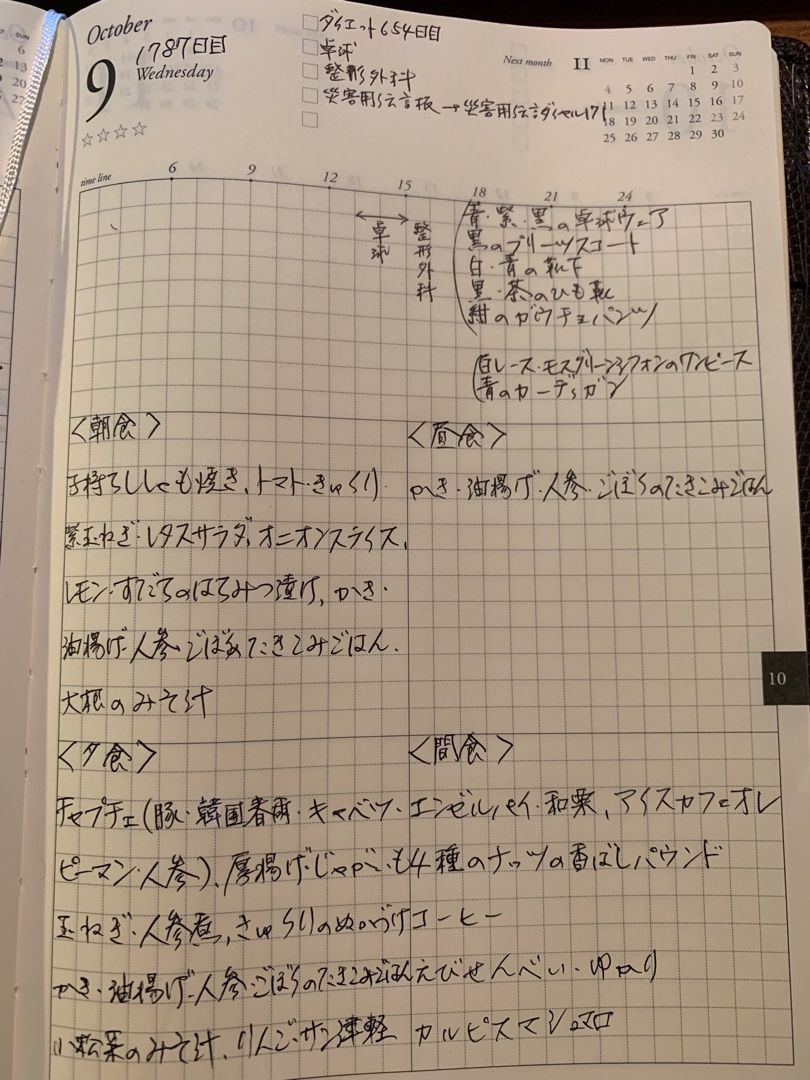 October
9
1787日目
Wednesday
☆☆☆☆
□ダイエット654日目
□卓球
□整形外科
□災害用伝言板→災害用伝言ダイヤル171
□
Next month 11
MON TUE WED THU FRI SAT SUN
1 2 3
4 5 6 7 8 9 10
11 12 13 14 15 16 17
18 19 20 21 22 23 24
25 26 27 28 29 30
time line 6 9 12 15 18 21 24
卓球
整形外科
(青・紫・黒の卓球ウェア
黒のプリーツスコート
白・青の靴下
黒・茶のひも靴
紺のガウチョパンツ)
(白レース・モスグリーンシフォンのワンピース
青のカーディガン
<朝食>
子持ちししゃも焼き、トマト・きゅうり・
紫玉ねぎ・レタスサラダ、オニオンスライス、
レモン・すだちのはちみつ漬け、かき・
油揚げ・人参・ごぼうのたきこみごはん、
大根のみそ汁
<昼食>
かき・油揚げ・人参・ごぼうのたきこみごはん
10
<夕食>
チャプチェ(豚・韓国春雨・キャベツ・
ピーマン・人参)、厚揚げ・じゃがいも
玉ねぎ・人参煮、きゅうりのぬかづけ
かき・油揚げ・人参・ごぼうのたきこみごはん
小松菜のみそ汁、りんご・サン津軽
<間食>
エンゼルパイ・和栗、アイスカフェオレ
4種のナッツの香ばしパウンド
コーヒー
えびせんべい・ゆかり
カルピスマシュマロ